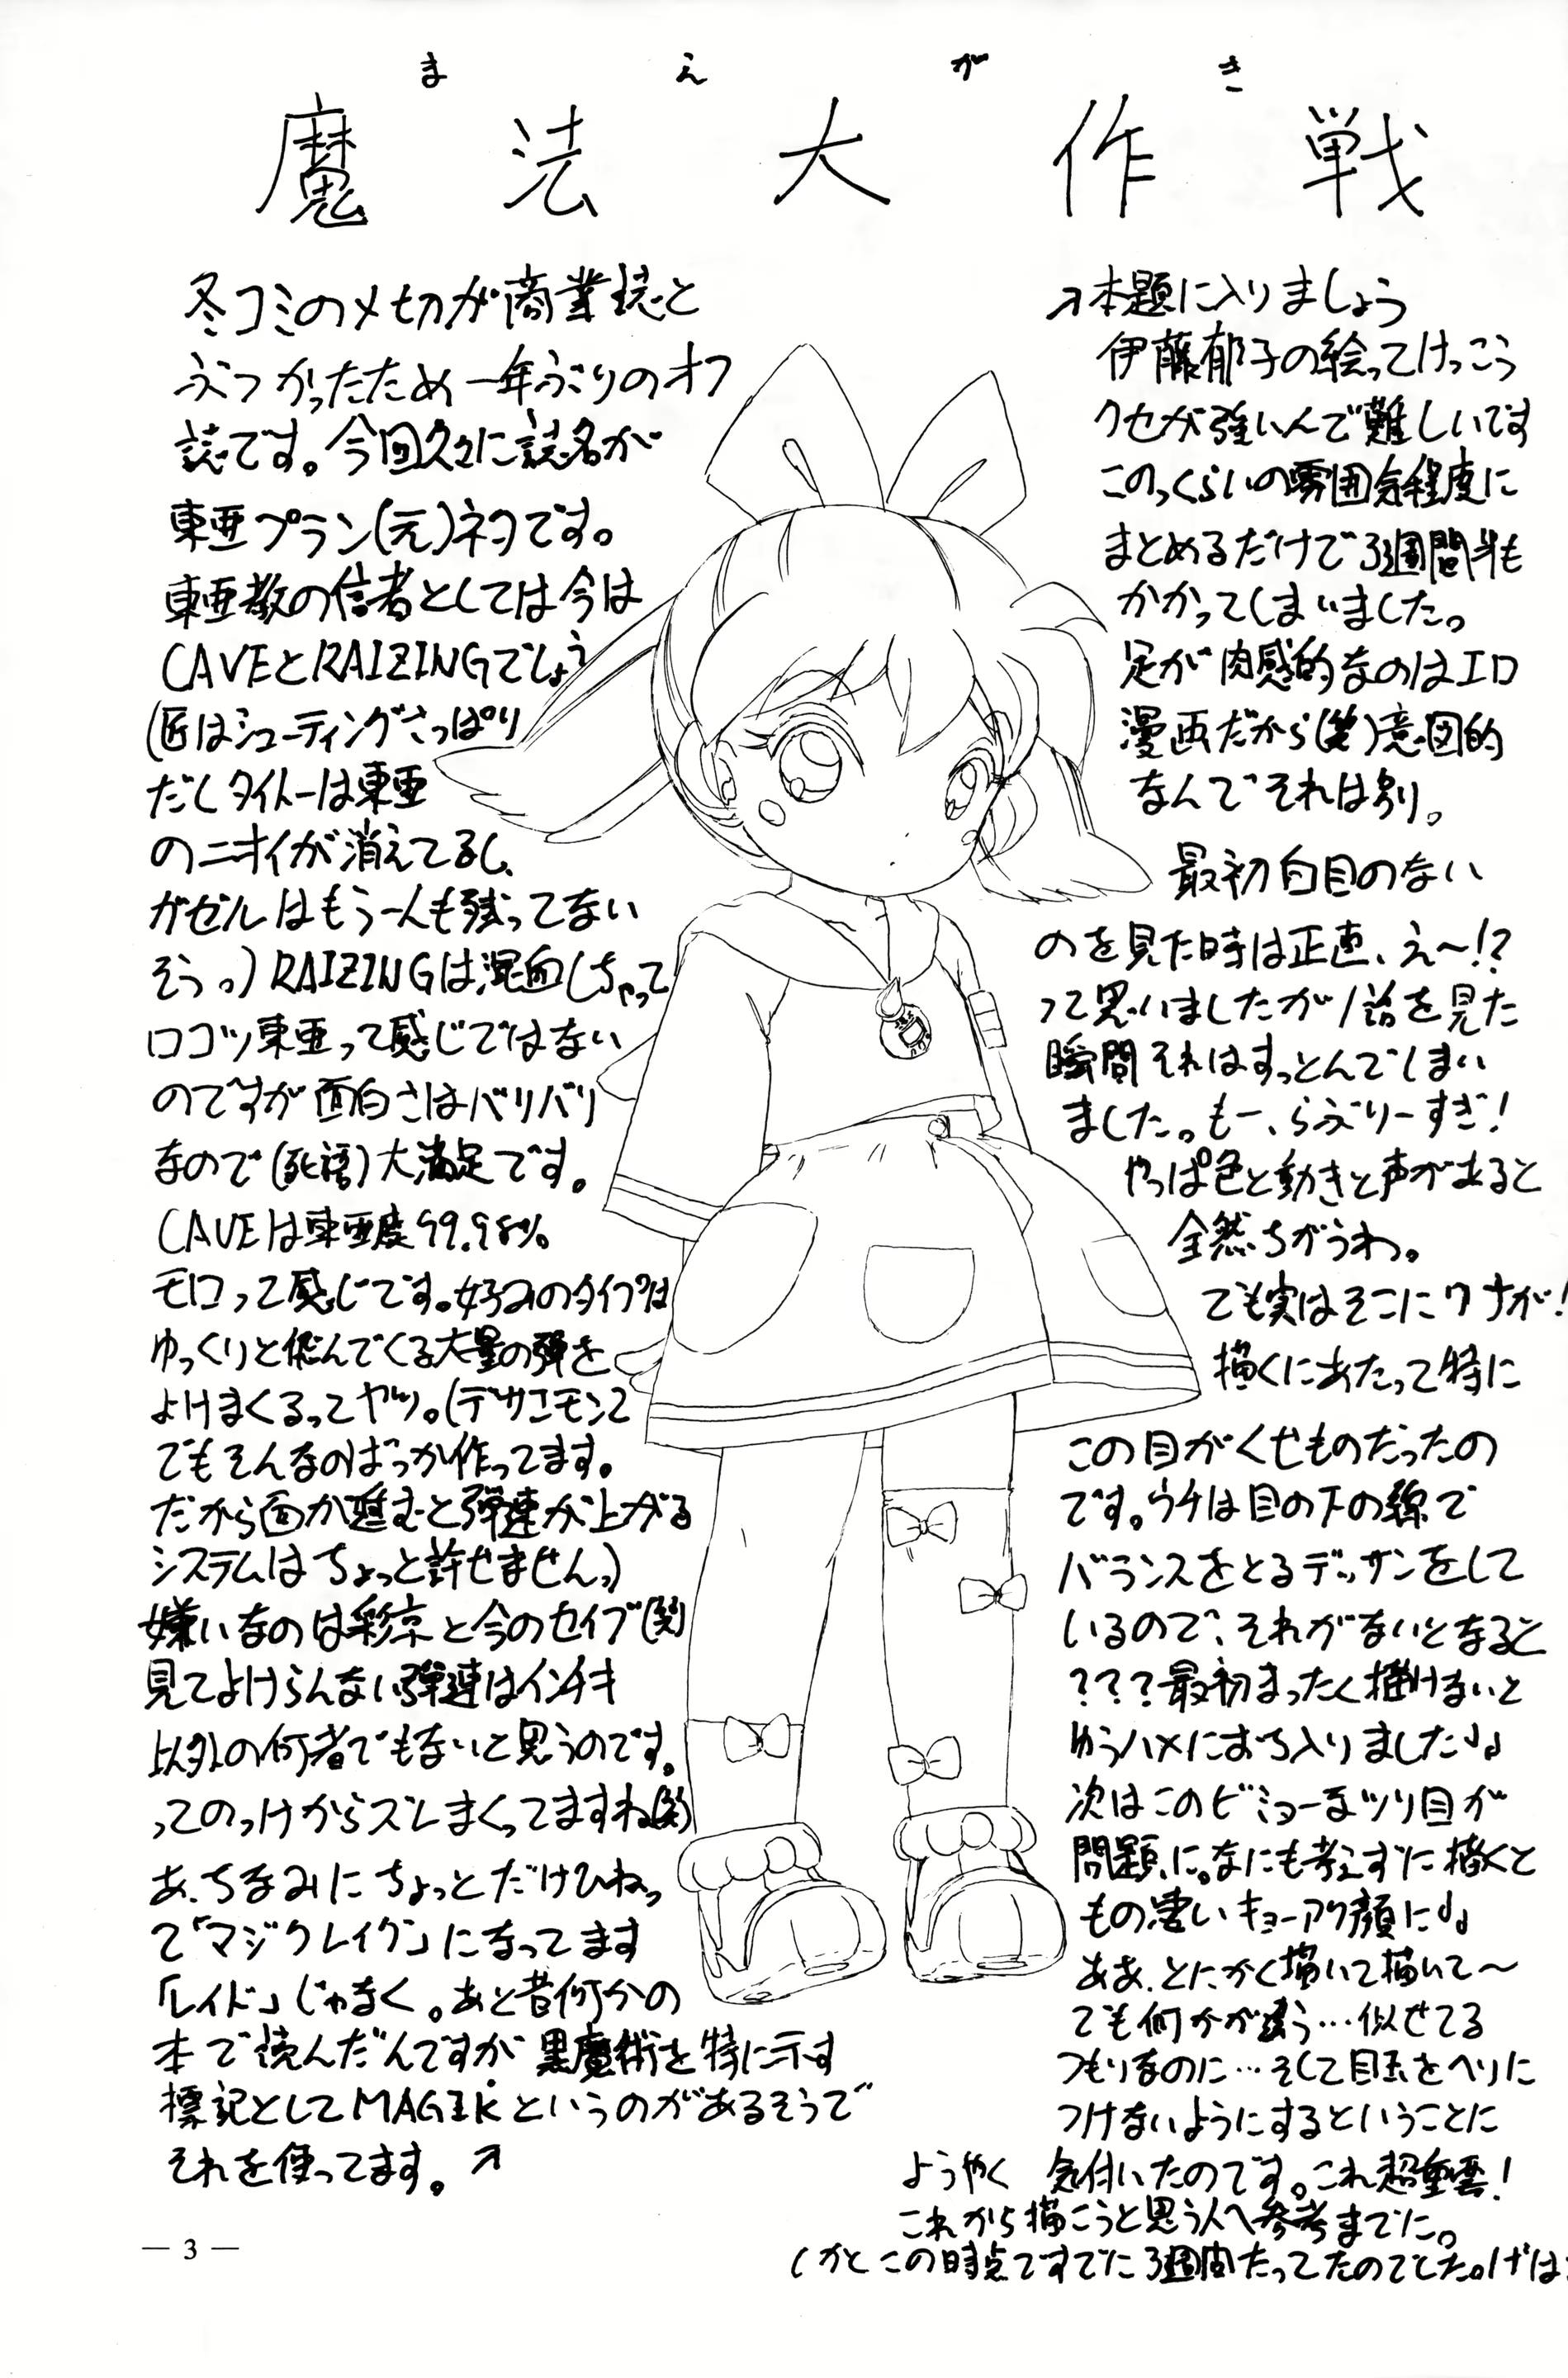 まえがき
魔法大作戦
冬コミの〆切が商業誌と
ぶつかったため一年ぶりのオフ
誌です。今回久々に誌名が
東亜プラン(元)ネタです。
東亜教の信者としては今は
CAVEとRAIZINGでしょう
(匠はシューティングさっぱり
だしタイトーは東亜
のニオイが消えてるし、
ガゼルはもう一人も残ってない
そう。)RAIZINGは混血しちゃって
ロコツ東亜って感じではない
のですが面白さはバリバリ
なので(死語)大満足です。
CAVEは東亜度99.98%
モロって感じです。好みのタイプは
ゆっくりと飛んでくる大量の弾を
よけまくるってヤツ。(デザエモン2
でもそんなのばっか作ってます。
だから面が進むと弾速が上がる
システムはちょっと許せません。)
嫌いなのは彩京と今のセイブ(笑)
見てよけらんない弾速はインチキ
以外の何者でもないと思うのです。
ってのっけからズレまくってますね(笑)
あ、ちなみにちょっとだけひねっ
て「マジクレイク」になってます
「レイド」じゃなく。あと昔何かの
本で読んだんですが黒魔術を特に示す
標記としてMAGIKというのがあるそうで
それを使ってます。↗
↗本題に入りましょう
伊藤郁子の絵ってけっこう
クセが強いんで難しいです
このっくらいの雰囲気程度に
まとめるだけで3週間半も
かかってしまいました。
足が肉感的なのはエロ
漫画だから(笑)意図的
なんでそれは別。
最初白目のない
のを見た時は正直、え〜!?
って思いましたが1話を見た
瞬間それはすっとんでしまい
ました。もー、らぶりーすぎ!
やっぱ色と動きと声があると
全然ちがうわ。
でも実はそこにワナが!
描くにあたって特に
この目がくせものだったの
です。ウチは目の下の線で
バランスをとるデッサンをして
いるので、それがないとなると
???最初まったく描けないと
ゆうハメにおち入りました
次はこのビミョーなツリ目が
問題に。なにも考えずに描くと
もの凄いキョーアク顔に
ああ、とにかく描いて描いて〜
でも何かが違う…似せてる
つもりなのに…そして目玉をヘリに
つけないようにするということに
ようやく 気付いたのです。これ超重要!
これから描こうと思う人へ参考までに。
(かとこの時点ですでに3週間たってたのでした。げは
— 3 —